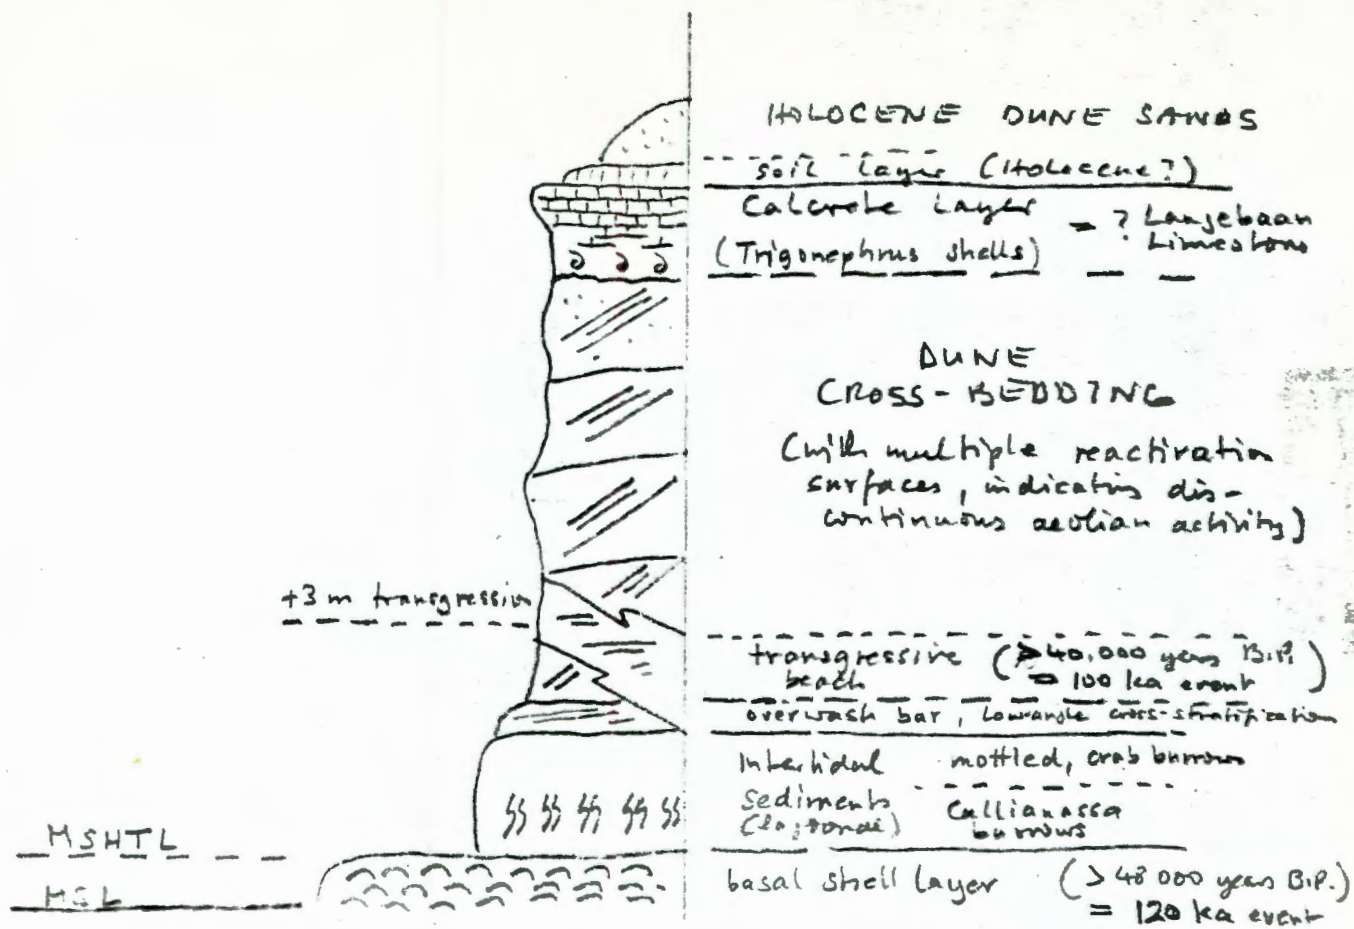 HOLOCENE DUNE SANDS
soil layer (Holocene?)
Calcrete Layer
(Trigonephrus shells)
= ? Langebaan
Limestone
DUNE
CROSS-BEDDING
(with multiple reactivation
surfaces, indicating dis-
continuous aeolian activity)
+3 m transgression
transgressive
beach
(>40,000 years B.P.
= 100 ka event)
overwash bar, low-angle cross-stratification
Intertidal
Sediments
mottled, crab burrows
Callianassa
burrows
MSHTL
MSL
basal shell layer
(>48 000 years B.P.)
= 120 ka event